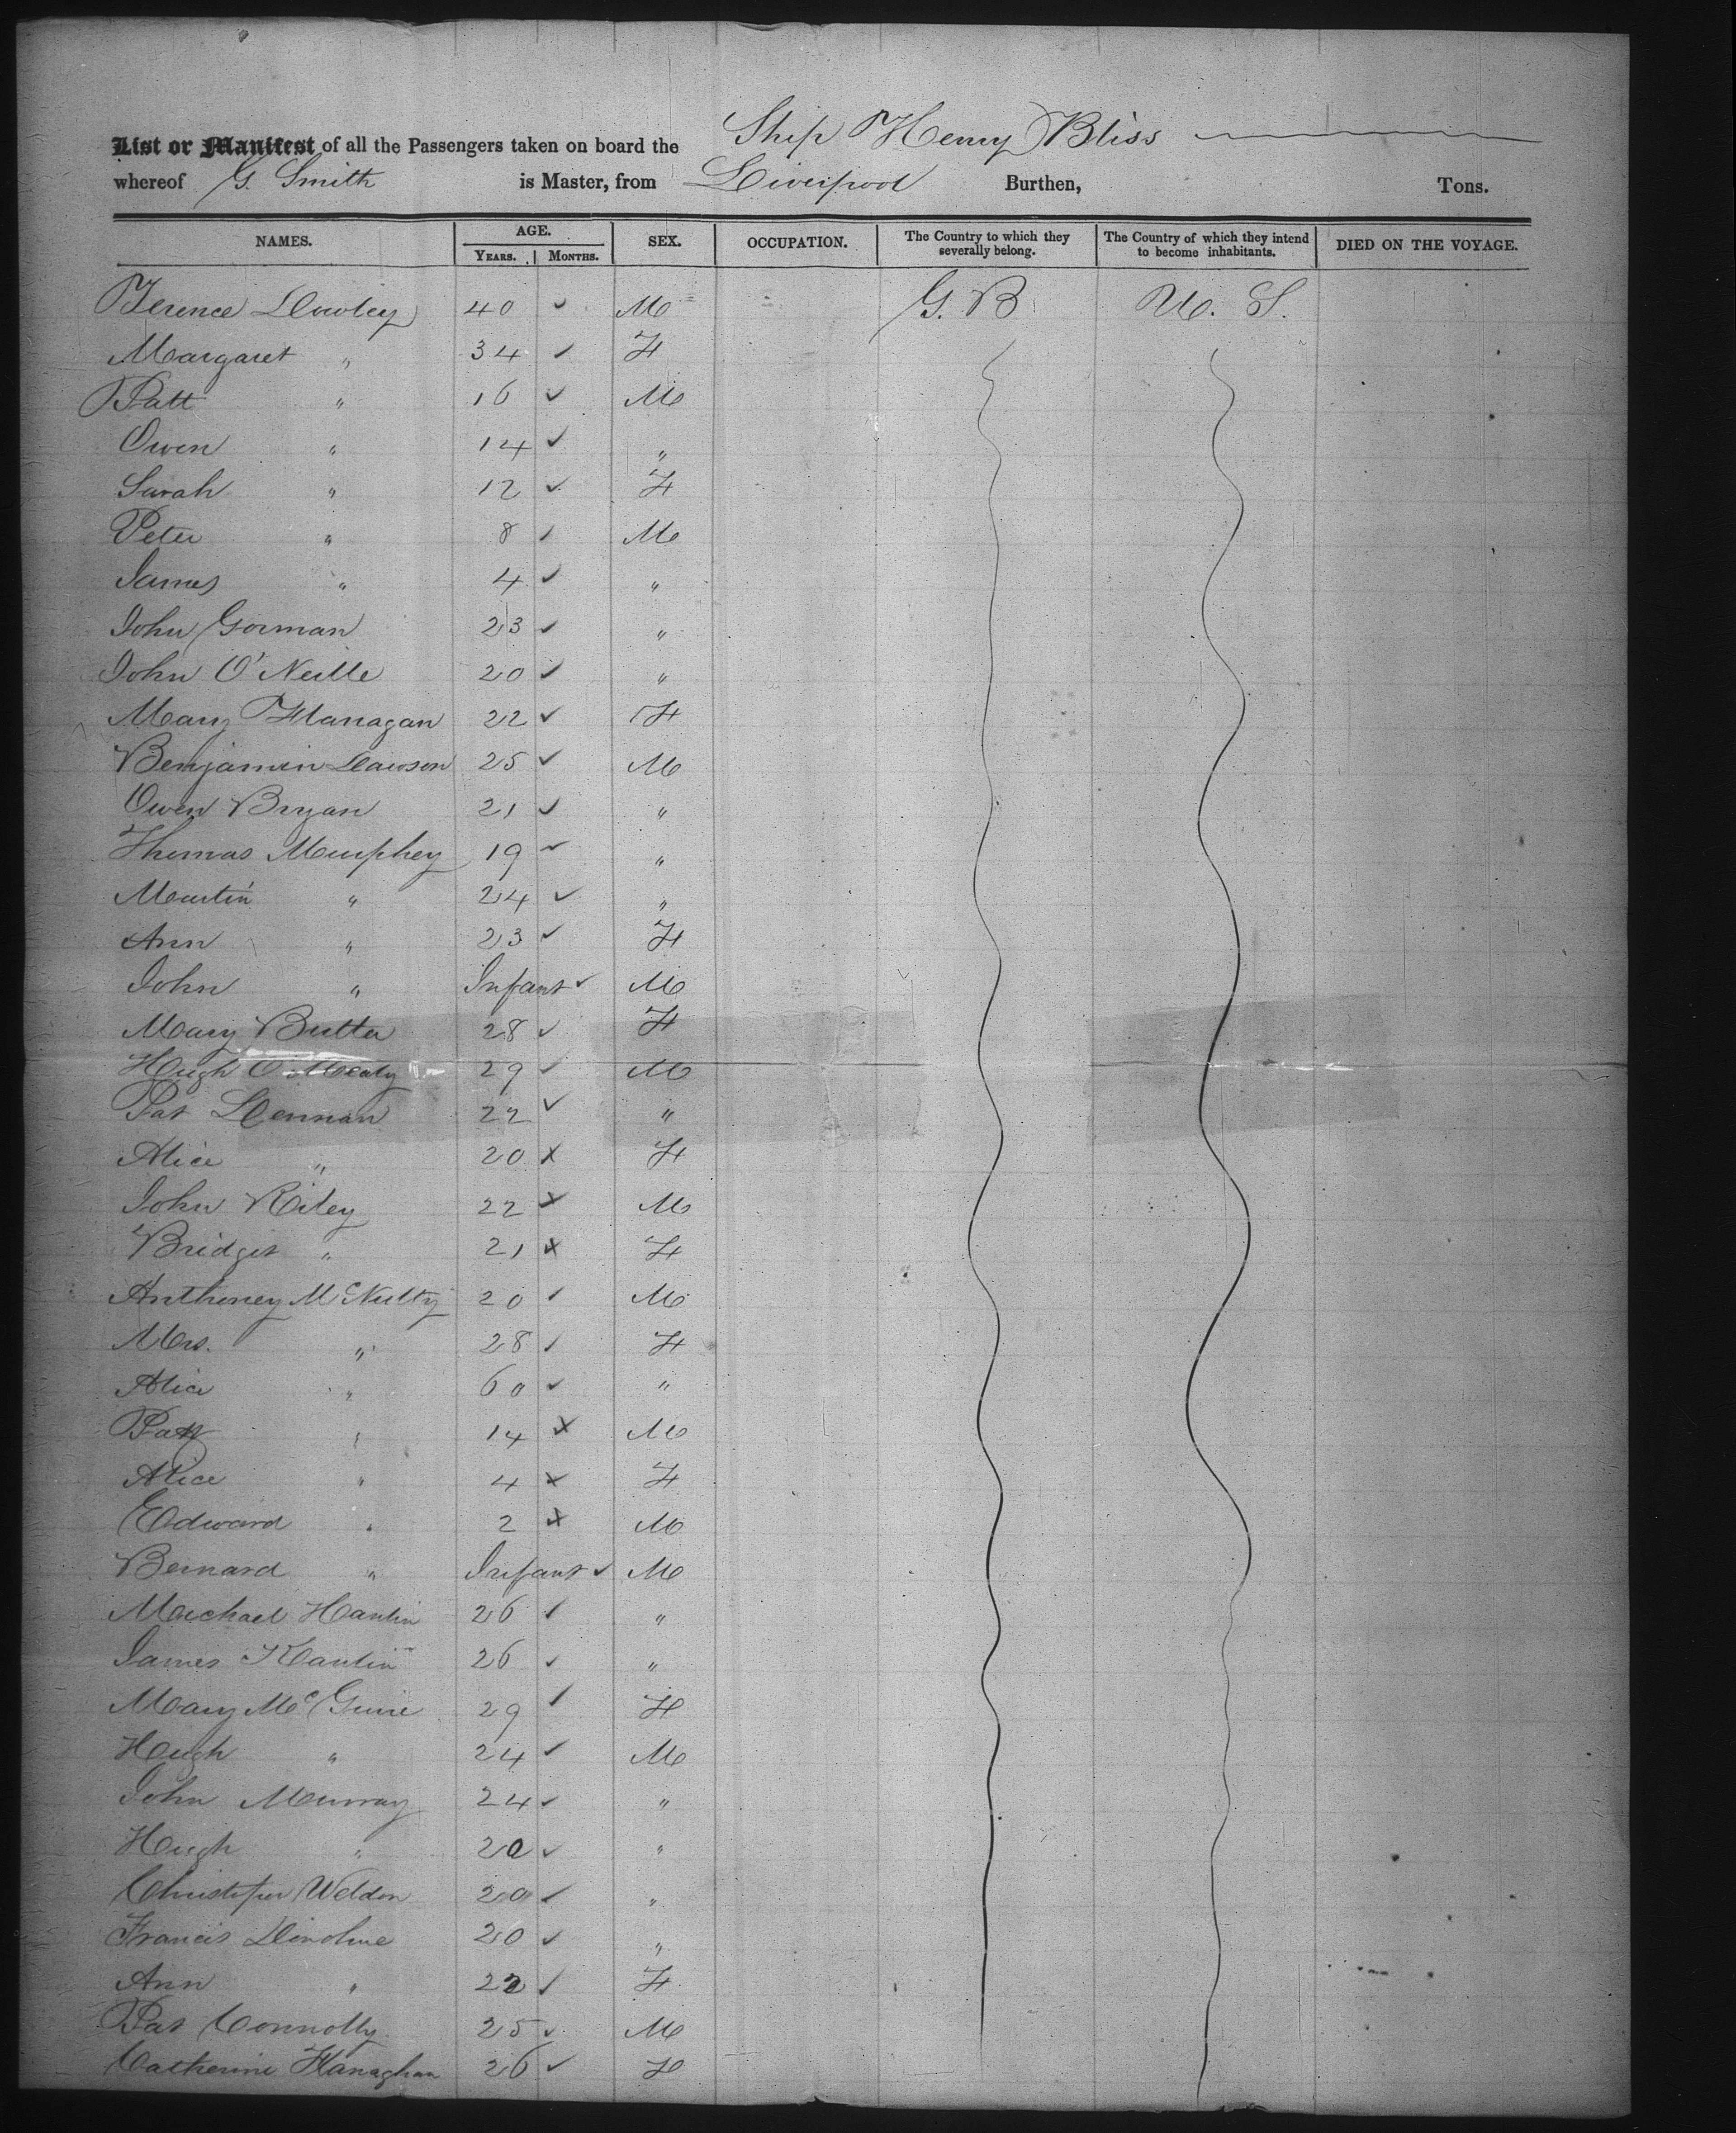 List or Manifest of all the Passengers taken on board the Ship Henry Bliss
whereof G. Smith is Master, from Liverpool Burthen, Tons.
NAMES. AGE. YEARS. MONTHS. SEX. OCCUPATION. The Country to which they severally belong. The Country of which they intend to become inhabitants. DIED ON THE VOYAGE.
Terence Dowley 40 ✓ M G. B U. S.
Margaret " 34 ✓ F
Patt " 16 ✓ M
Owen " 14 ✓ "
Sarah " 12 ✓ F
Peter " 8 ✓ M
James " 4 ✓ "
John Gorman 23 ✓ "
John O'Neille 20 ✓ "
Mary Flanagan 22 ✓ F
Benjamin Dawson 25 ✓ M
Owen Bryan 21 ✓ "
Thomas Murphey 19 ✓ "
Martin " 24 ✓ "
Ann " 23 ✓ F
John " Infant ✓ M
Mary Butter 28 ✓ F
Hugh O'Mealy 29 ✓ M
Pat Dennan 22 ✓ "
Alice " 20 x F
John Riley 22 x M
Bridget " 21 x F
Anthoney McNulty 20 ✓ M
Mrs. " 28 ✓ F
Alice " 60 ✓ "
Patt " 14 x M
Alice " 4 x F
Edward " 2 x M
Bernard " Infant ✓ M
Michael Hanlin 26 ✓ "
James Hanlin 26 ✓ "
Mary McGuire 29 ✓ F
Hugh " 24 ✓ M
John Murray 24 ✓ "
Hugh " 20 ✓ "
Christopher Weldon 20 ✓ "
Francis Donohue 20 ✓ "
Ann " 22 ✓ F
Pat Connolly 25 ✓ M
Catherine Flanaghan 26 ✓ F